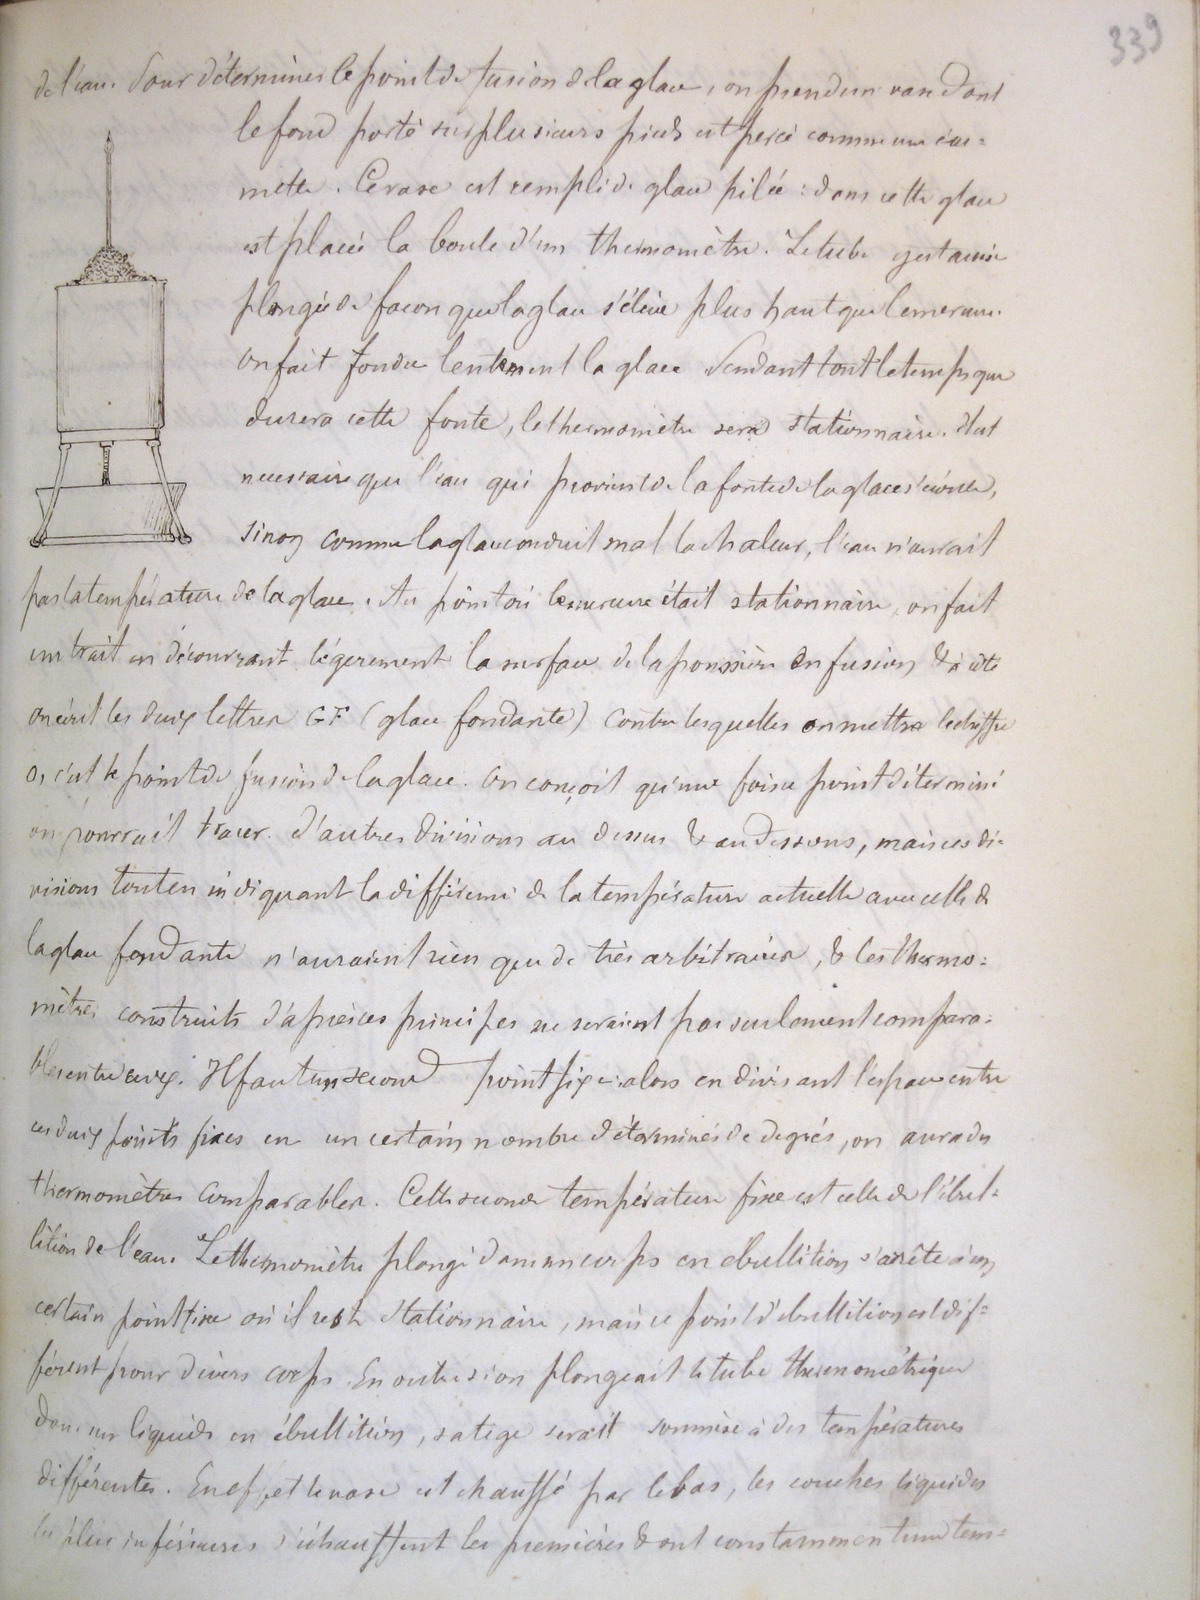 339
de l'eau. Pour déterminer le point de fusion de la glace, on prend un vase dont
le fond porté sur plusieurs pieds est percé comme une cu=
mette. Ce vase est rempli de glace pilée : dans cette glace
est placée la boule d'un thermomètre. Le tube y est aussi
plongé de façon que la glace s'élève plus haut que le mercure.
on fait fondre lentement la glace. Pendant tout le temps que
durera cette fonte, le thermomètre sera stationnaire. Il est
necessaire que l'eau qui provient de la fonte de la glace s'écoule,
sinon comme la glace conduit mal la chaleur, l'eau n'aurait
pas la température de la glace. Au point où le mercure était stationnaire, on fait
un trait en découvrant légerement la surface de la poussière en fusion & à côté
on écrit les deux lettres G F (glace fondante) contre lesquelles on mettra le chiffre
0, c'est le point de fusion de la glace. On conçoit qu'une fois ce point déterminé
on pourrait tracer d'autres divisions au dessus & au dessous, mais ces di=
visions tout en indiquant la différence de la température actuelle avec celle de
la glace fondante n'auraient rien que de très arbitraires, & les thermo=
mètres construits d'après ces principes ne seraient pas seulement compara=
bles entre eux. Il faut un second point fixe : alors en divisant l'espace entre
ces deux points fixes en un certain nombre déterminés de degrés, on aura des
thermomètres comparables. Cette seconde température fixe est celle de l'ébul=
lition de l'eau. Le thermomètre plongé dans un corps en ébullition s'arrête à un
certain point fixe où il reste stationnaire, mais ce point d'ébullition est dif=
férent pour divers corps. En outre si on plongeait le tube thermométrique
dans un liquide en ébullition, sa tige serait soumise à des températures
différentes. En effet le vase est chauffé par le bas, les couches liquides
les plus inférieures s'échauffent les premières & ont constamment une tem=